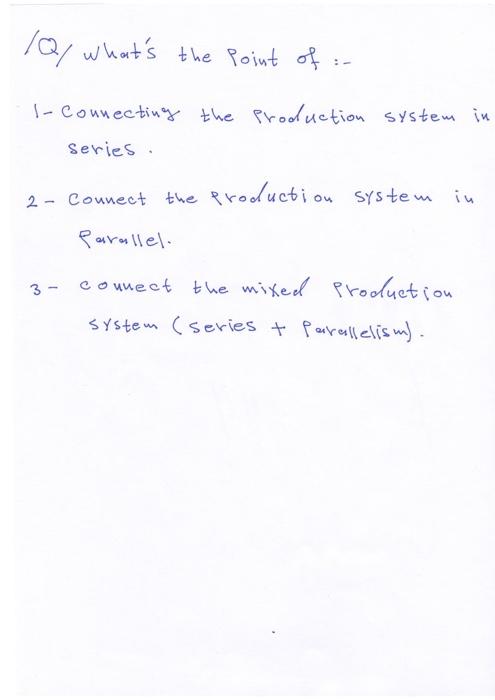 /Q/ what's the Point of :-
1- Connecting the Production system in
series .
2 - Connect the Production system in
Parallel.
3 - connect the mixed Production
system (series + Parallelism) .